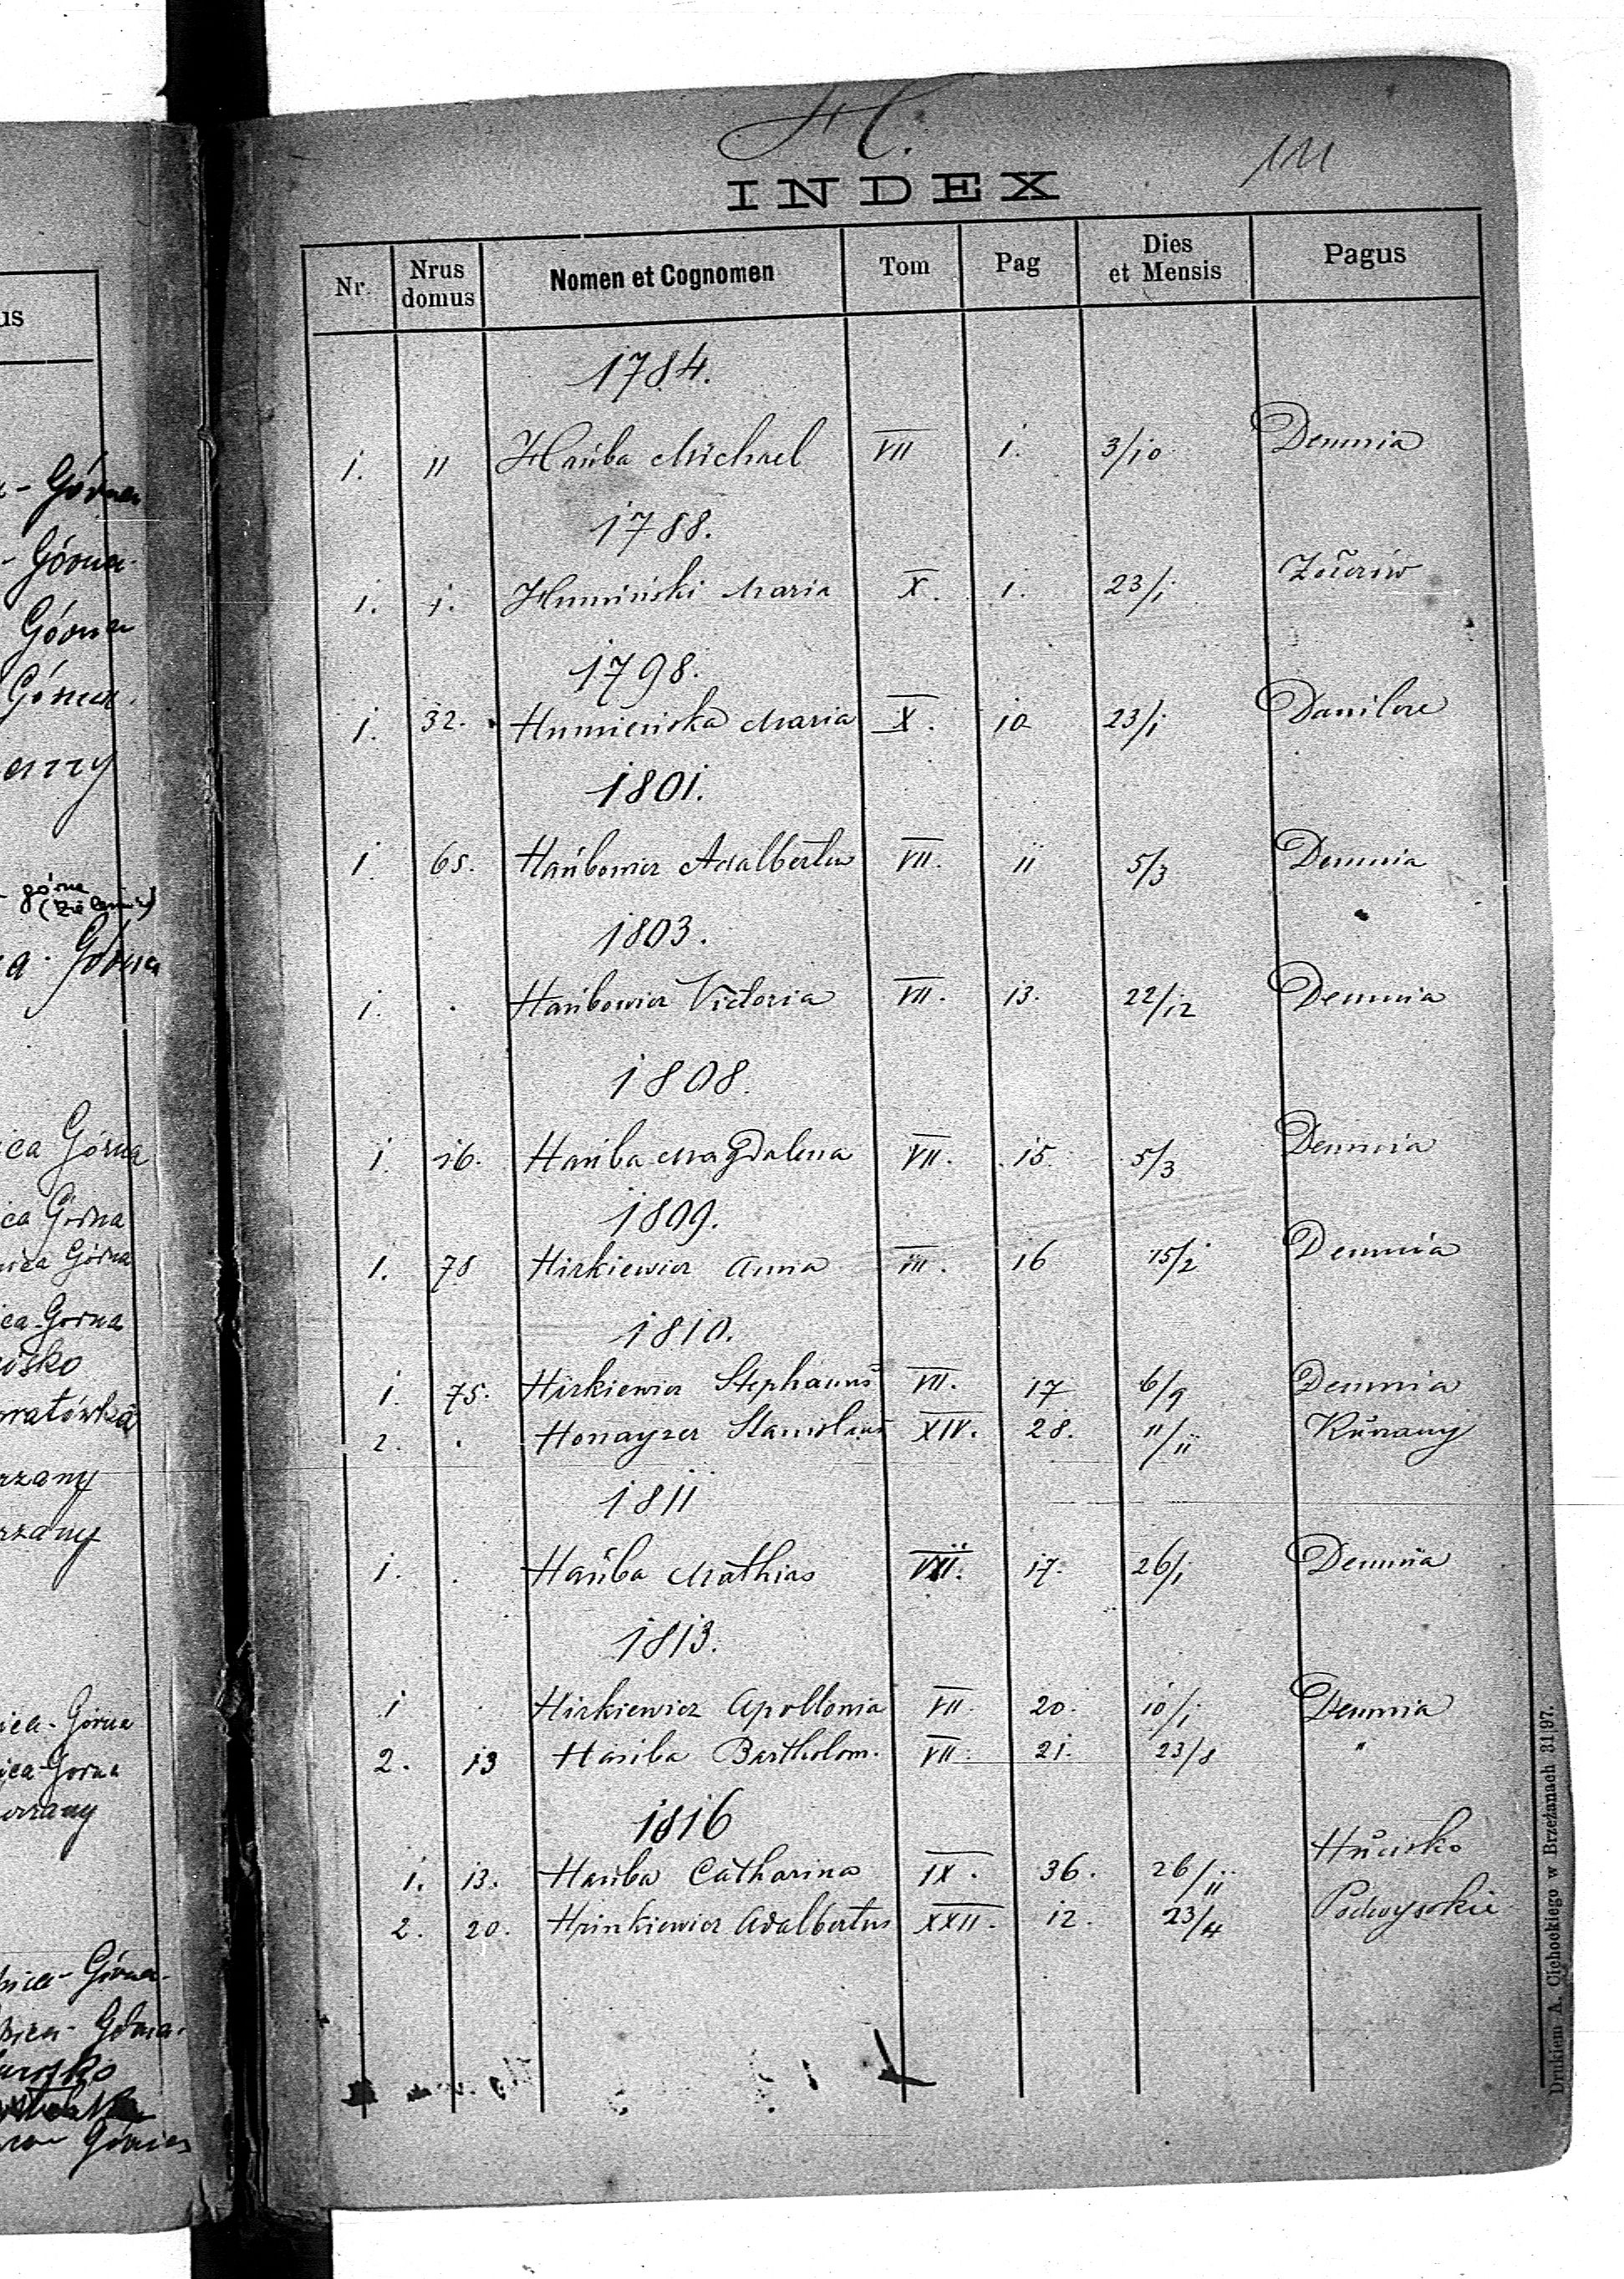 H.
111
INDEX
Nr. Nrus domus Nomen et Cognomen Tom Pag Dies et Mensis Pagus
1784.
1. 11 Hańba Michael VII 1. 3/10 Demnia
1788.
1. 1. Humiński Maria X. 1. 23/1
1798.
1. 32. Humieńska Maria X. 10 23/1 Danilcze
1801.
1. 65. Hańbowicz Adalbertus VII. 11 5/3 Demnia
1803.
1. . Hańbowicz Victoria VII. 13. 22/12 Demnia
1808.
1. 16. Hańba Magdalena VII. 15. 5/3 Demnia
1809.
1. 78 Hirkiewicz Anna VII. 16 15/2 Demnia
1810.
1. 75. Hirkiewicz Stephanus VII. 17 6/9 Demnia
2. . Stanislaus XIV. 28. 11/11 Kurzany
1811
1. . Hańba Mathias VII. 17. 26/1 Demnia
1813.
1 . Hirkiewicz Apollonia VII. 20. 10/1 Demnia
2. 13 Hańba Bartholom. VII. 21. 23/8 "
1816
1. 13. Hańba Catharina IX. 36. 26/11 Hucisko
2. 20. Hrinkiewicz Adalbertus XXII. 12. 23/4 Podwysokie
Drukiem A. Cichockiego w Brzeżanach 31|97.
us
- Górna
- Górna
Górna
Górna
górna
a - Górna
ica Górna
ica Górna
nica Górna
ica - Górna
isko
ratówka
rzany
rzany
ica - Górna
ica - Górna
urzany
nica - Górna
nica - Górna